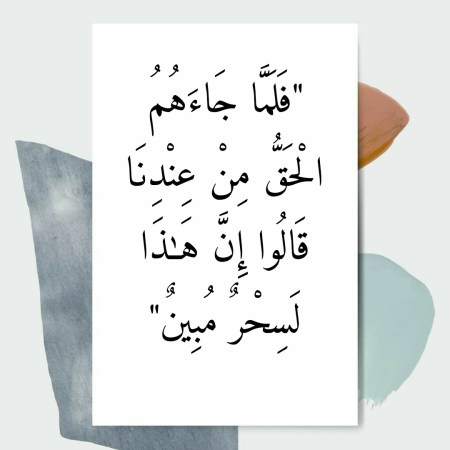 "فَلَمَّا جَاءَهُمُ
الْحَقُّ مِنْ عِنْدِنَا
قَالُوا إِنَّ هَٰذَا
لَسِحْرٌ مُبِينٌ"